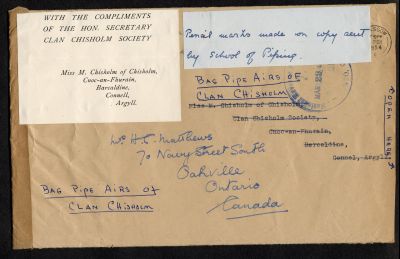 WITH THE COMPLIMENTS
OF THE HON. SECRETARY
CLAN CHISHOLM SOCIETY
Miss M. Chisholm of Chisholm,
Cnoc-an-Fhurain,
Barcaldine,
Connell,
Argyll.
Pencil marks made on copy sent
by School of Piping.
BAG PIPE AIRS OF
CLAN CHISHOLM
Miss M. Chisholm of Chisholm
Clan Chisholm Society,
Cnoc-an-Fhurain,
Barcaldine,
Connel, Argyll
OPEN HERE
H.C. Matthews
70 Navy Street South
Oakville
Ontario
Canada
BAG PIPE AIRS OF
CLAN CHISHOLM